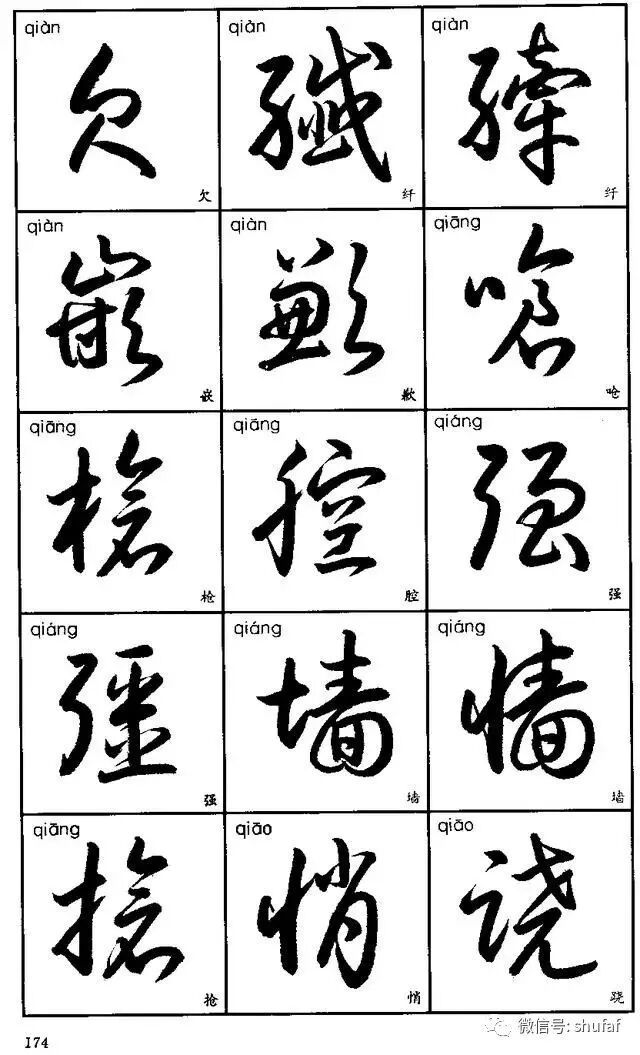 qiàn qiàn qiàn
欠 纖 縴
欠 纤 纤
qiàn qiàn qiāng
嵌 歉 嗆
嵌 歉 呛
qiāng qiāng qiáng
槍 腔 强
枪 腔 强
qiáng qiáng qiáng
彊 墙 牆
强 墙 墙
qiāng qiāo qiāo
搶 悄 跷
抢 悄 跷
174
微信号: shufaf